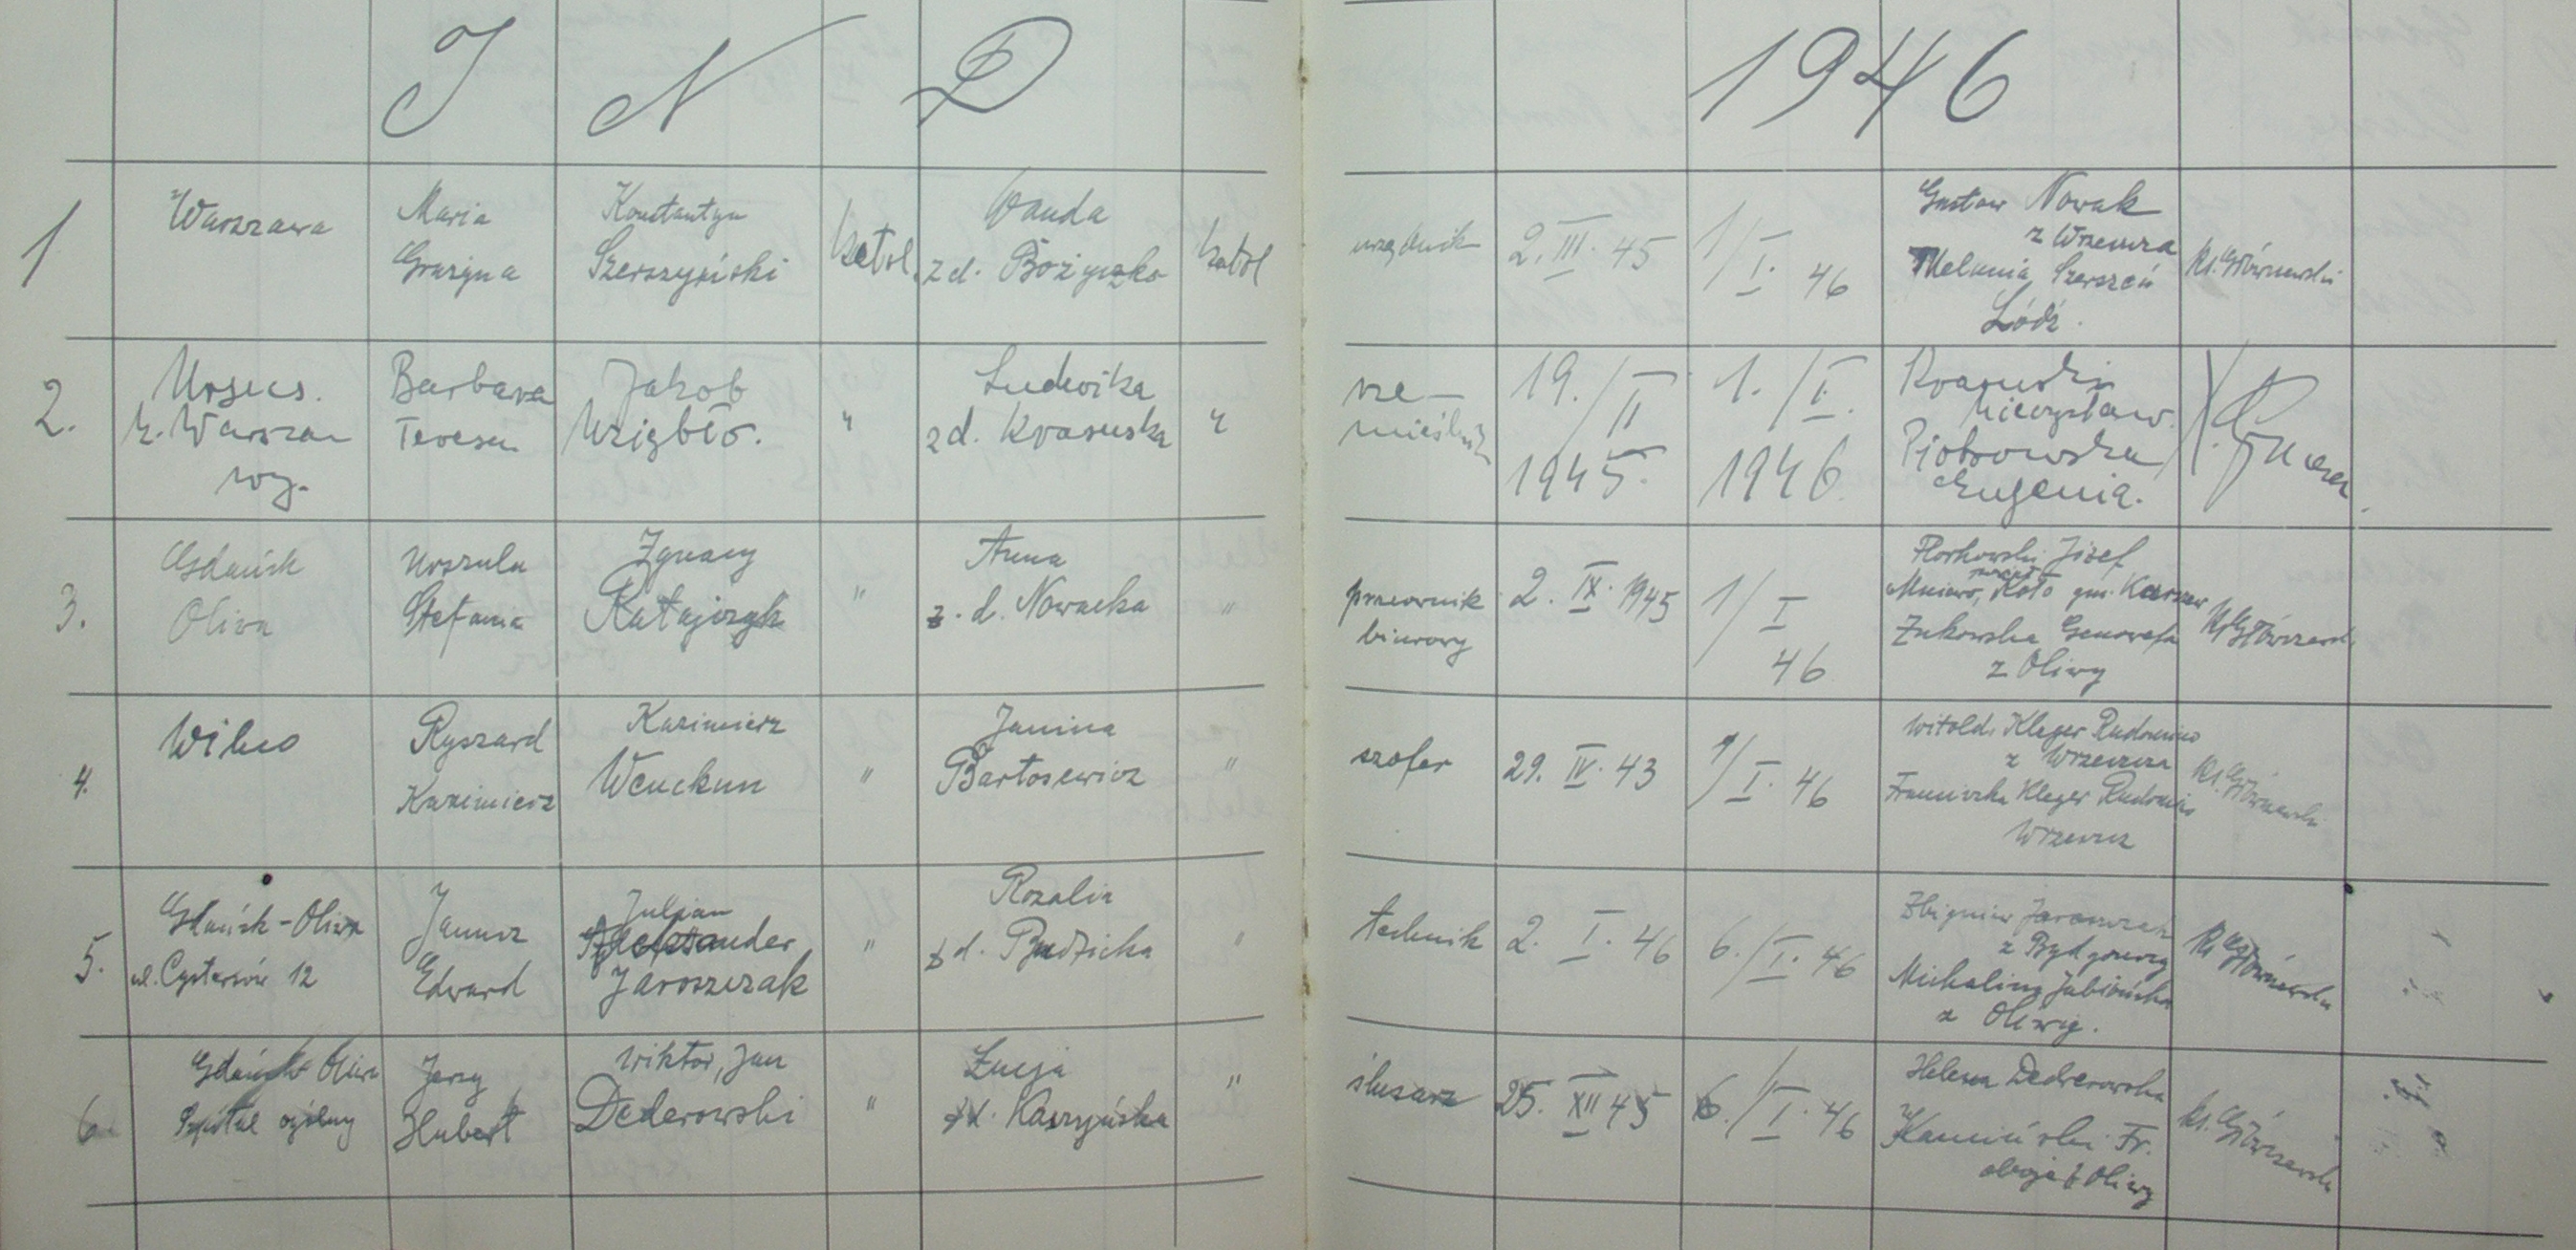 I N D 1946
1
Warszawa
Maria
Grażyna
Konstantyn
Szerszyński
katol.
Wanda
z d. Bożyczko
katol
urzędnik
2. III. 45
1/I. 46
Gustaw Nowak
z Wrzeszcza
Melania Szerszeń
Łódź.
ks. Główczewski
2.
Ursus.
k. Warsza
wy.
Barbara
Teresa
Jakob
"
Ludwika
z d. Krasuska
"
rze-
mieślnik
19./II
1945.
1./I.
1946
Krasuski
Mieczysław.
Piotrowska
Eugenia.
3.
Gdańsk
Oliva
Urszula
Stefania
Ignacy
Ratajczyk
"
Anna
z. d. Nowacka
"
pracownik
biurowy
2. IX. 1945
1/I
46
Florkowski Józef
powiat
Mniewo, Koło gm.
Żukowska Genowefa
z Oliwy
ks Główczewski
4.
Wilno
Ryszard
Kazimierz
Kazimierz
Wenckun
"
Janina
Bartosewicz
"
szofer
29. IV. 43
1/I. 46
Witold Kleger
z Wrzeszcza
Franciszka Kleger
Wrzeszcz
ks. Główczewski
5.
Gdańsk-Oliwa
ul. Cystersów 12
Janusz
Edward
Julian
Aleksander
Jaroszczak
"
Rozalia
z d.
"
technik
2. I. 46
6./I. 46
Zbigniew Jaroszczak
z Bydgoszczy
Michalina Jabłońska
z Oliwy.
ks Główczewski
6
Gdańsk Oliwa
Szpital ogólny
Jerzy
Hubert
Wiktor, Jan
Dederowski
"
Łucja
z d. Kaszyńska
"
ślusarz
25. XII 45
6./I. 46
Helena Dederowska
Kamiński Fr.
oboje z Oliwy
ks. Główczewski